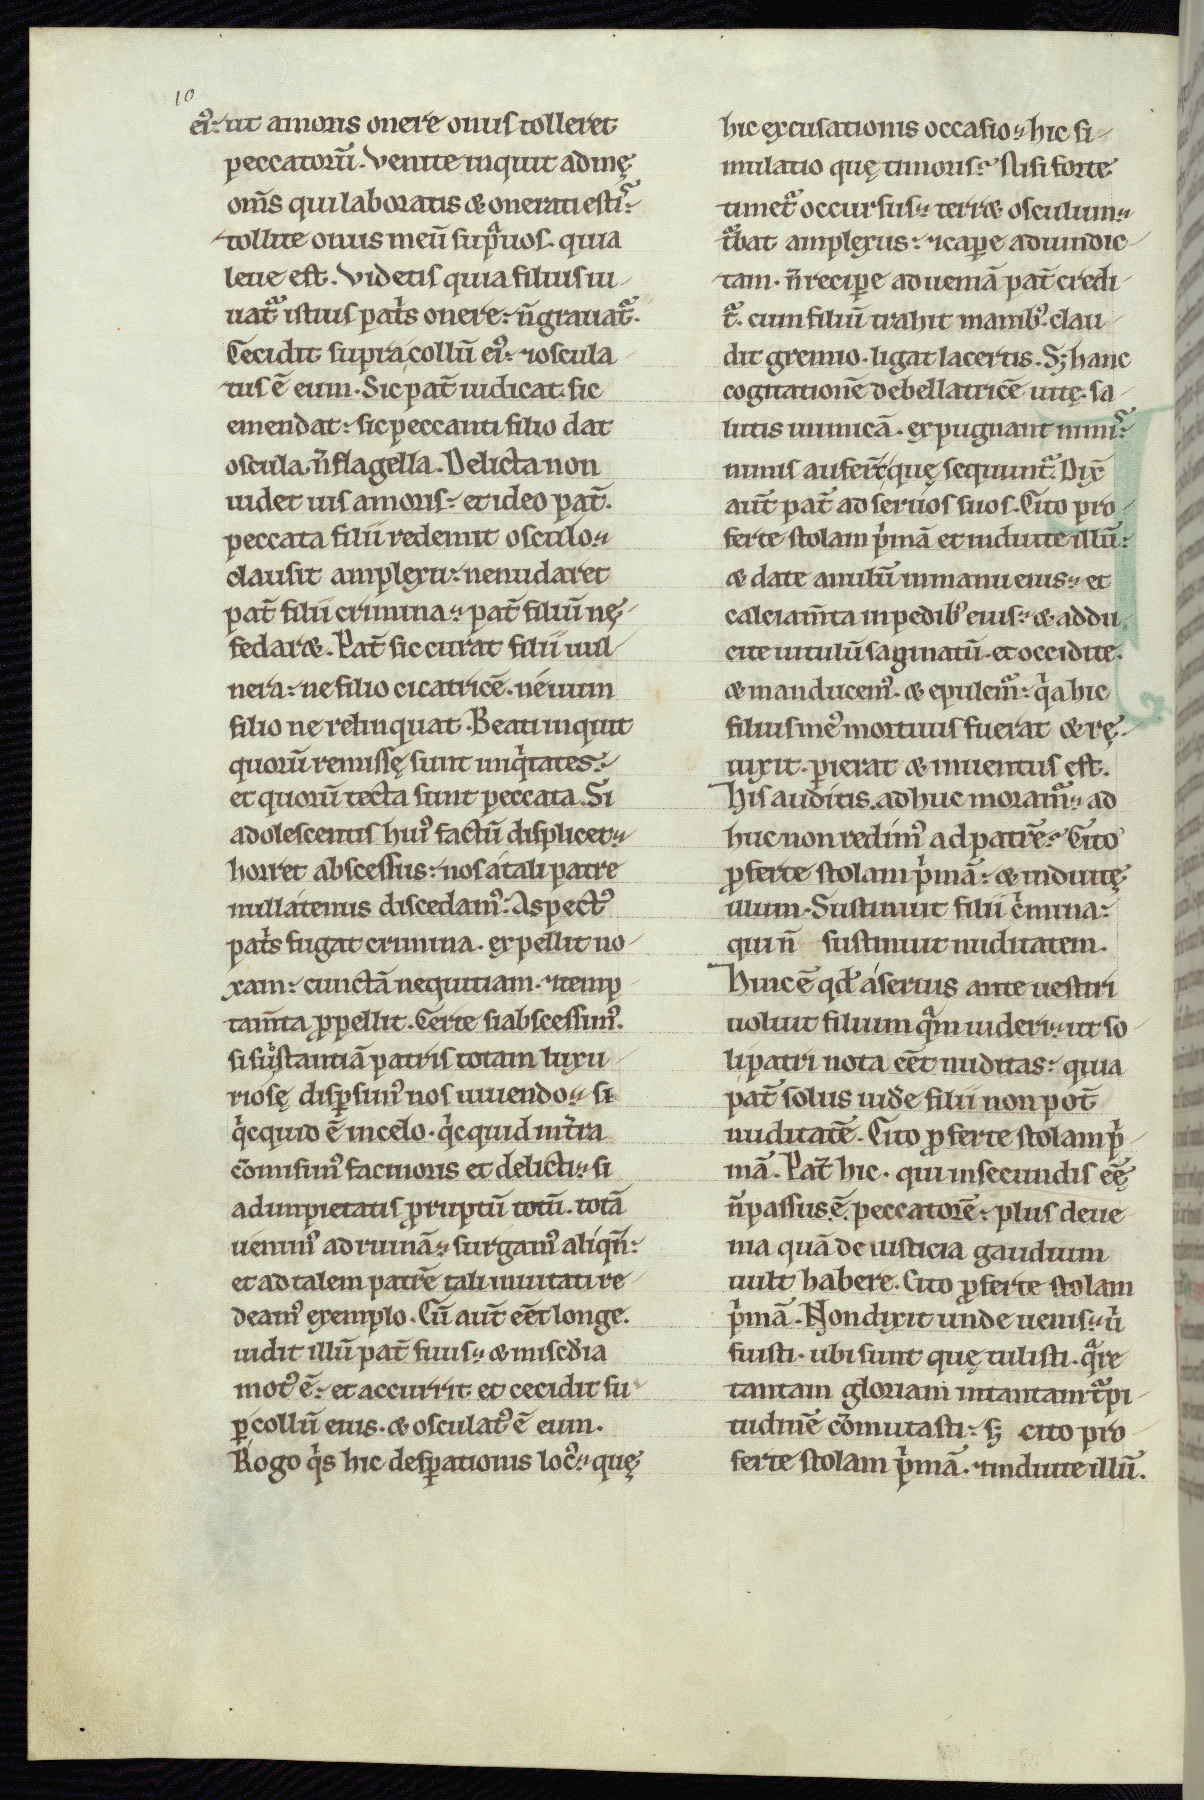 10
ei᾿: ut amoris onere onus tolleret
peccatorũ. Venite inquit ad mę
om̃s qui laboratis & onerati estis:
tollite onus meũ sup̃ uos. quia
leue est. Videtis quia filius iu-
uat᷑ istius pat̃s onere: ñ grauat᷑.
Cecidit supra collũ ei᾿: ⁊ oscula-
tus ẽ eum. Sic pat̃ iudicat. sic
emendat: sic peccanti filio dat
oscula. ñ flagella. Delicta non
uidet uis amoris: et ideo pat̃.
peccata filii redemit osculo.
clausit amplexu: ne nudaret
pat̃ filii crimina. pat̃ filiũ nę
fedar&. Pat̃ sic curat filii uul-
nera: ne filio cicatricẽ. ne uum
filio ne relinquat. Beati inquit
quorũ remissę sunt iniq̇tates:
et quorũ tecta sunt peccata. Si
adolescentis hui᾿ factũ displicet.
horret abscessus: nos a tali patre
nullatenus discedam᾿. Aspect᾿
pat̃s fugat crimina. expellit no-
xam: cunctã nequitiam. ⁊ temp-
tam̃ta ꝓpellit. Certe si abscessim᾿.
si sub̾stantiã patris totam luxu-
riosę dispersim᾿ nos uiuendo. si
q̇cquid ẽ in celo. q̇cquid in tr̃ra
cõmisim᾿ facinoris et delicti. si
ad impietatis ꝓruptũ totũ. totã
uenim᾿ ad ruinã. surgam᾿ aliqñ:
et ad talem patrẽ tali inuitati re-
deam᾿ exemplo. Cũ aut̃ eẽt longe.
uidit illũ pat̃ suus. & miscd̃ia
mot᾿ ẽ: et accurrit et cecidit su-
ꝑ collũ eius. & osculat᾿ ẽ eum.
Rogo q̇s hic desꝑationis loc᾿. quę
hic excusationis occasio. hic si-
mulatio quę timoris? Nisi forte
timet᷑ occursus. terr& osculum.
t᷑bat amplexus: ⁊ capꝑe ad uindic-
tam. ñ recipꝑe ad ueniã pat̃ credi-
t᷑. cum filiũ trahit manib᾿. clau-
dit gremio. ligat lacertis. Sꝫ hanc
cogitationẽ debellatricẽ uitę. sa-
lutis inimicã. expugnant nimis:
nimis auferẽt quę sequunt᷑. Dix̃
aut̃ pat̃ ad seruos suos. Cito pro-
ferte stolam p̃mã et induite illũ:
& date anulũ in manu eius. et
calciam̃ta in pedib᾿ eius. & addu-
cite uitulũ saginatũ. et occidite.
& manducem᾿. & epulem᷑: q̇a hic
filius me᾿ mortuus fuerat & rę-
uixit. ꝑierat & inuentus est.
His auditis. adhuc moram᷑. ad-
huc non redim᾿ ad patrẽ? Cito
ꝓferte stolam p̃mã: & induitę
illum. Sustinuit filii c̃mina:
qui ñ sustinuit nuditatem.
Hinc ẽ qđ a seruis ante uestiri
uoluit filium q̃m uideri. ut so-
li patri nota eẽt nuditas: quia
pat̃ solus uidẽe filii non pot̃
nuditatẽ. Cito ꝓferte stolam p̃-
mã. Pat̃ hic. qui in secundis eẽę
ñ passus ẽ peccatorẽ: plus de ue-
nia quã de iusticia gaudium
uult habere. Cito ꝓferte stolam
p̃mã. Non dixit unde uenis. u̇
fuisti. ubi sunt quę tulisti. q̃re
tantam gloriam in tantam t᷑pi-
tudinẽ cõmutasti: sꝫ cito pro-
ferte stolam p̃mã. ⁊ induite illũ.